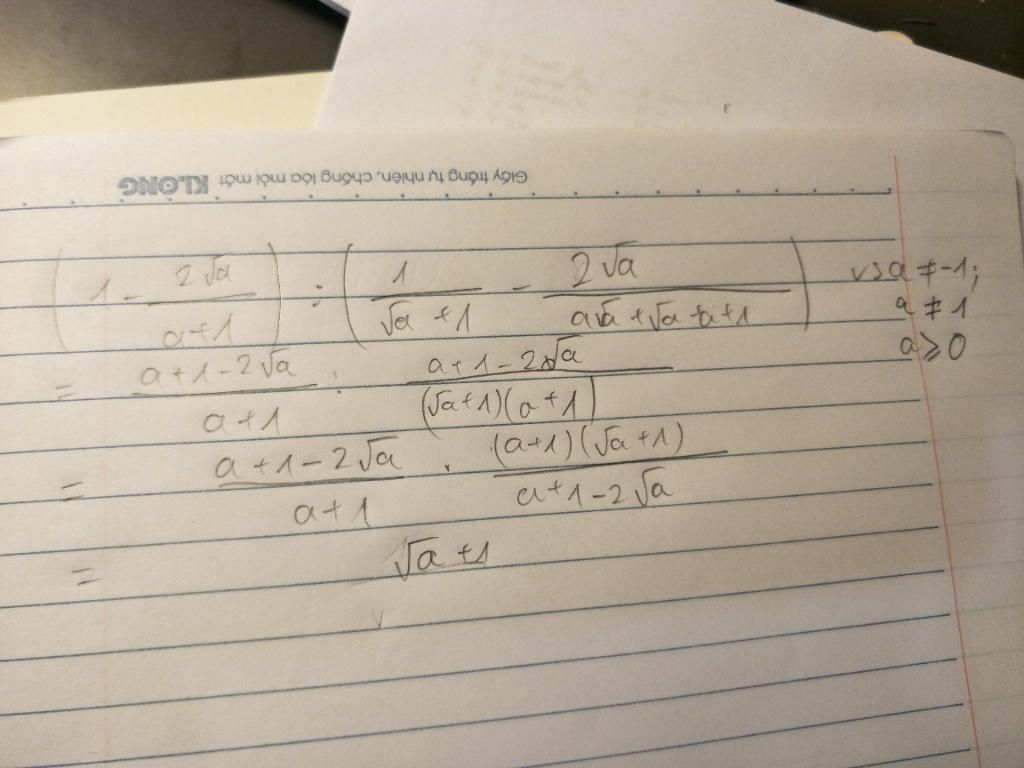 Giấy trắng tự nhiên, chống lóa mỏi mắt KLONG
3
( 1 - 2√a / a+1 ) : ( 1 / √a +1 - 2√a / a√a +√a +a +1 ) vs a ≠ -1;
a ≠ 1
a ≥ 0
= a+1-2√a / a+1 : a+1-2√a / (√a+1)(a+1)
= a+1-2√a / a+1 . (a+1)(√a+1) / a+1-2√a
= √a +1